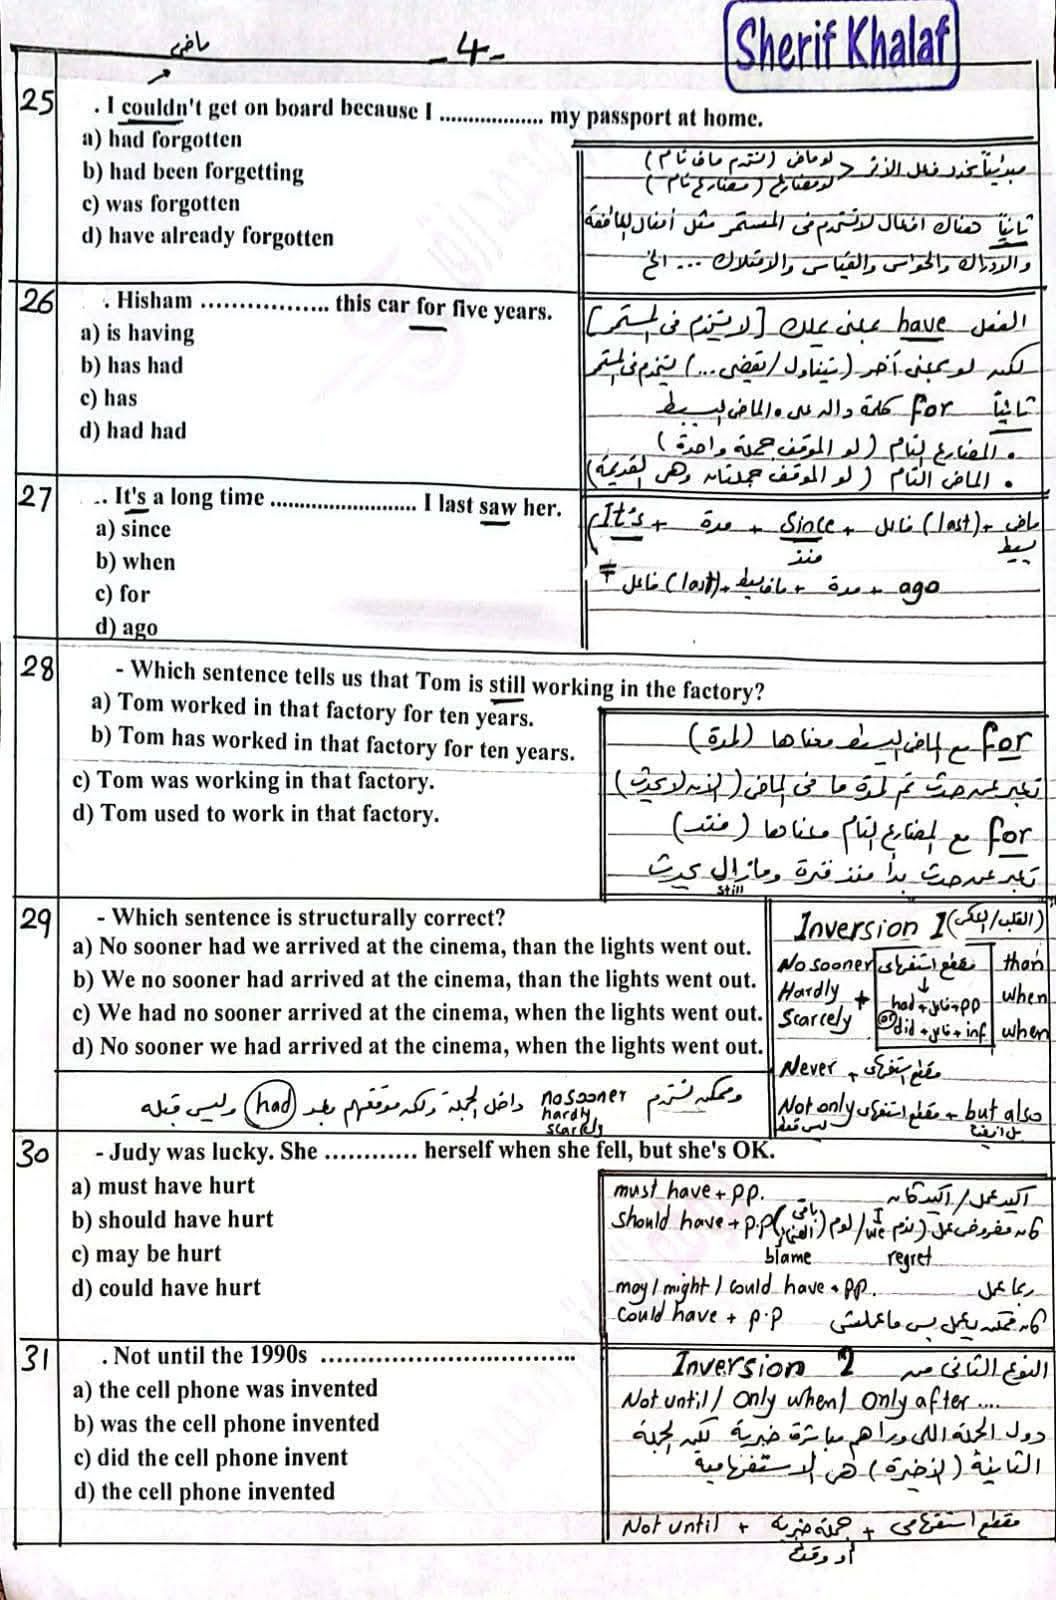 ماضى
-4-
Sherif Khalaf
25
. I couldn't get on board because I .................. my passport at home.
a) had forgotten
b) had been forgetting
c) was forgotten
d) have already forgotten
مبدئياً نحدد فعل الأثر < لو ماض (نستخدم ماض تام)
لو مضارع (مضارع تام)
ثانياً هناك افعال لا تستخدم فى المستمر مثل أفعال العاطفة
والادراك والحواس والقياس والامتلاك ... الخ
26
. Hisham ................ this car for five years.
a) is having
b) has had
c) has
d) had had
الفعل have بمعنى يملك [لا يستخدم فى المستمر]
لكن لو بمعنى آخر (يتناول / يقضى ...) يستخدم فى المستمر
ثانياً for كلمة دالة على • الماضى البسيط
• المضارع التام (لو الموقف جملة واحدة)
• الماضى التام (لو الموقف جملتان وهى القديمة)
27
.. It's a long time ......................... I last saw her.
a) since
b) when
c) for
d) ago
It's + مدة + since + فاعل (last) + ماض بسيط
منذ
فاعل (last) + ماض بسيط + مدة + ago
28
- Which sentence tells us that Tom is still working in the factory?
a) Tom worked in that factory for ten years.
b) Tom has worked in that factory for ten years.
c) Tom was working in that factory.
d) Tom used to work in that factory.
for مع الماضى البسيط معناها (لمدة)
تعبر عن حدث تم لمدة ما فى الماضى (الآن لا يحدث)
for مع المضارع التام معناها (منذ)
تعبر عن حدث بدأ منذ فترة ومازال يحدث
still
29
- Which sentence is structurally correct?
a) No sooner had we arrived at the cinema, than the lights went out.
b) We no sooner had arrived at the cinema, than the lights went out.
c) We had no sooner arrived at the cinema, when the lights went out.
d) No sooner we had arrived at the cinema, when the lights went out.
Inversion 1 (القلب / العكس)
No sooner مقطع استفهامى than
Hardly + had + فاعل + pp when
Scarcely or did + فاعل + inf when
Never + مقطع استفهامى
Not only مقطع استفهامى + but also
ليس فقط بل ايضاً
وممكن نستخدم no sooner داخل الجملة ولكن موقعهم بعد (had) وليس قبله
hardly
scarcely
30
- Judy was lucky. She ............ herself when she fell, but she's OK.
a) must have hurt
b) should have hurt
c) may be hurt
d) could have hurt
must have + pp. أكيد عمل / أكيد كان
should have + p.p (باقى الضمائر) لوم / (I we) ندم كان مفروض عمل
blame regret
may / might / could have + pp. ربما عمل
could have + p.p كان ممكن يعمل بس ماعملش
31
. Not until the 1990s ..................................
a) the cell phone was invented
b) was the cell phone invented
c) did the cell phone invent
d) the cell phone invented
النوع الثانى من Inversion 2
Not until / Only when / Only after ....
دول الجملة اللى وراهم مباشرة خبرية لكن الجملة
الثانية (الأخيرة) هى الاستفهامية
Not until + جملة خبرية + مقطع استفهامى
أو وقت